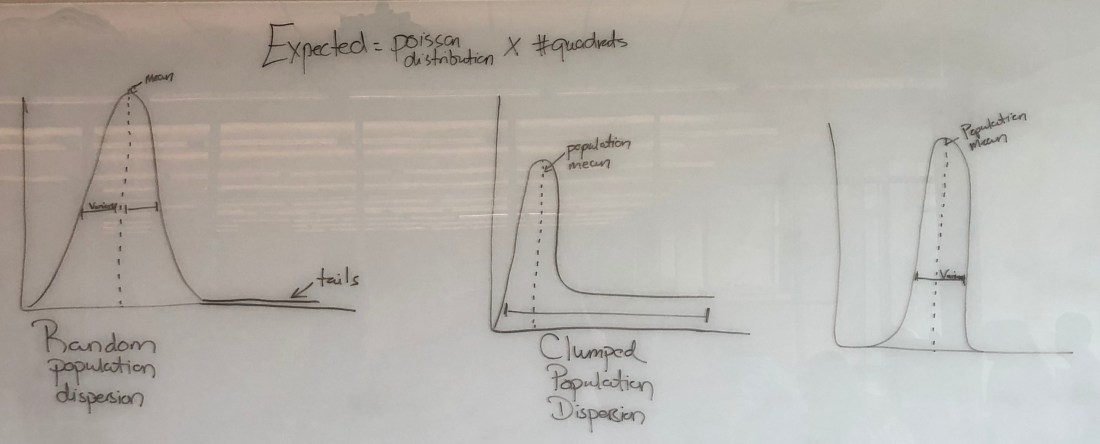 Expected = poisson
distribution X #quadrats
Mean
Variance
tails
Random
population
dispersion
population
mean
Clumped
Population
Dispersion
Population
mean